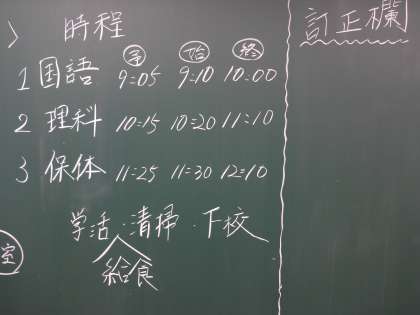 時程
予 始 終
1 国語 9:05 9:10 10:00
2 理科 10:15 10:20 11:10
3 保体 11:25 11:30 12:10
学活・清掃・下校
給食
室
訂正欄